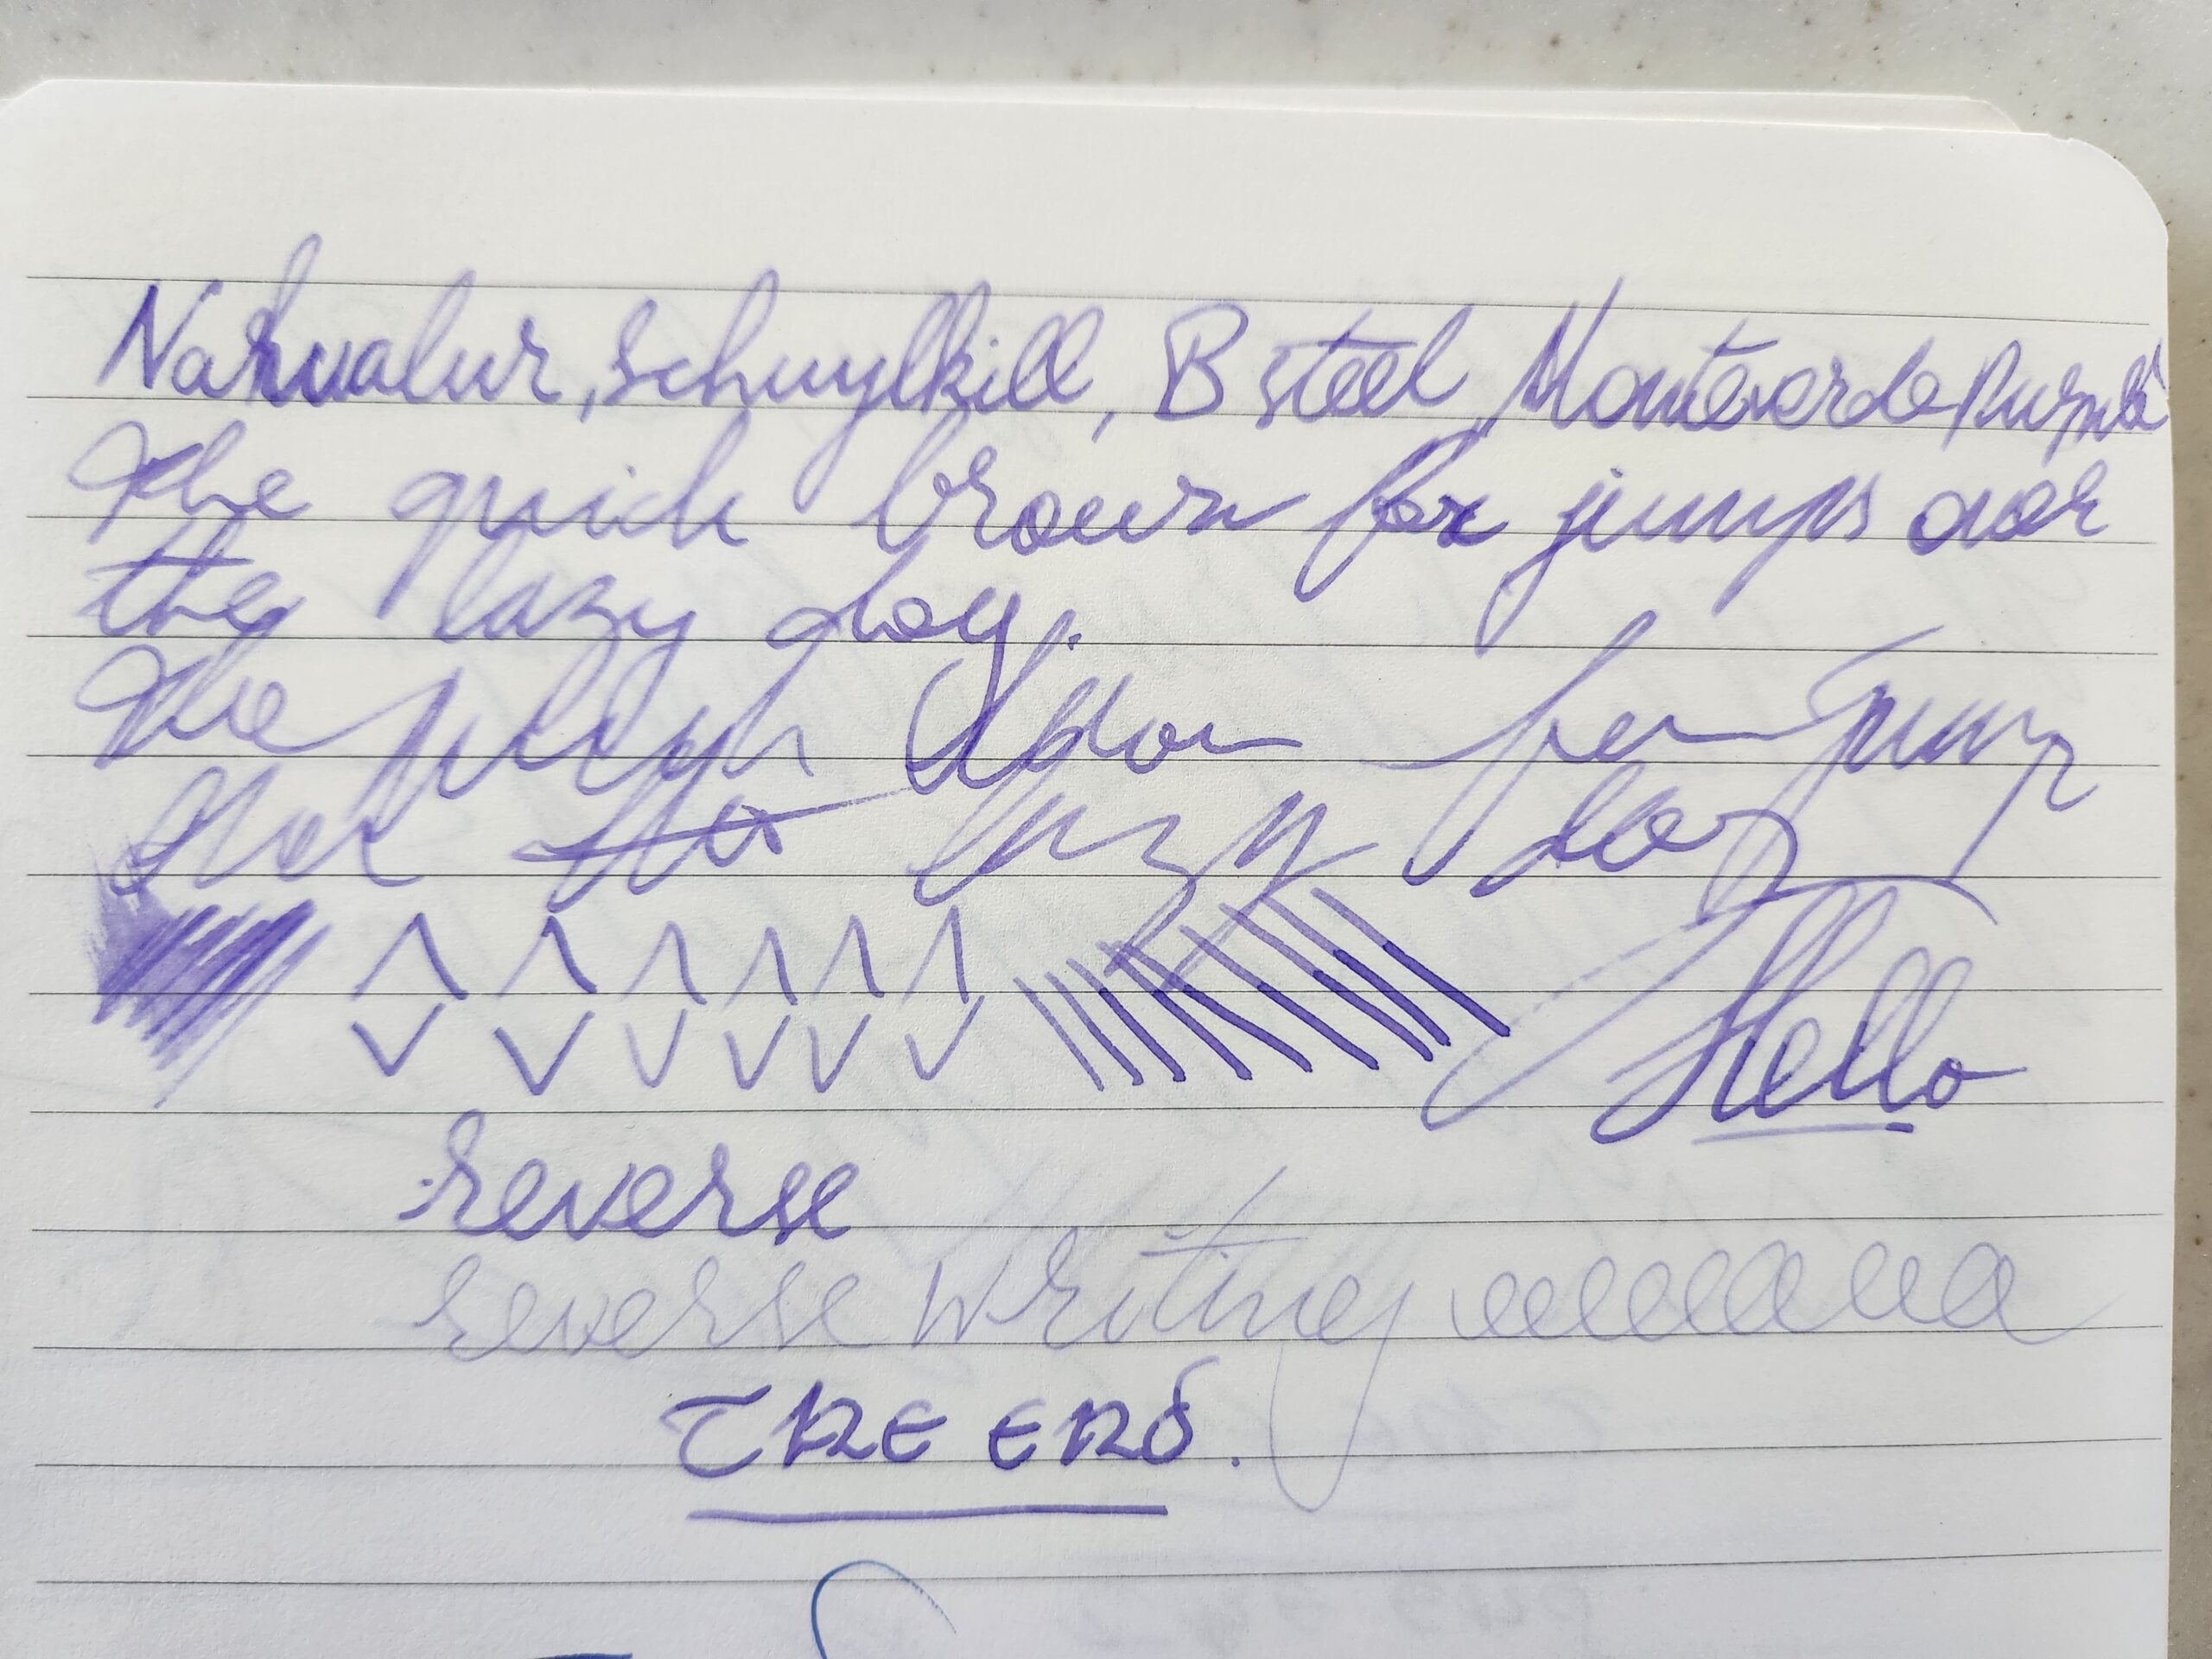 Narwalur, Schuylkill, B steel, Monteverde Purple
The quick brown fox jumps over
the lazy dog.
The
over the lazy dog
Hello
reverse
reverse writing
THE END.